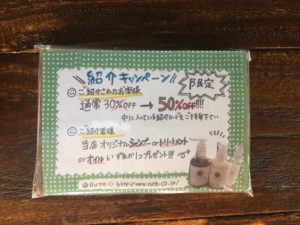 紹介キャンペーン
月限定
ご紹介されたお客様
通常 30%OFF → 50%OFF!!!
中に入っている紹介カードをご持参下さい
ご紹介者様
当店 オリジナルシャンプー or トリートメント
or オイル いずれか1つプレゼント!!!
RUTH http://www.ruth-co.jp/